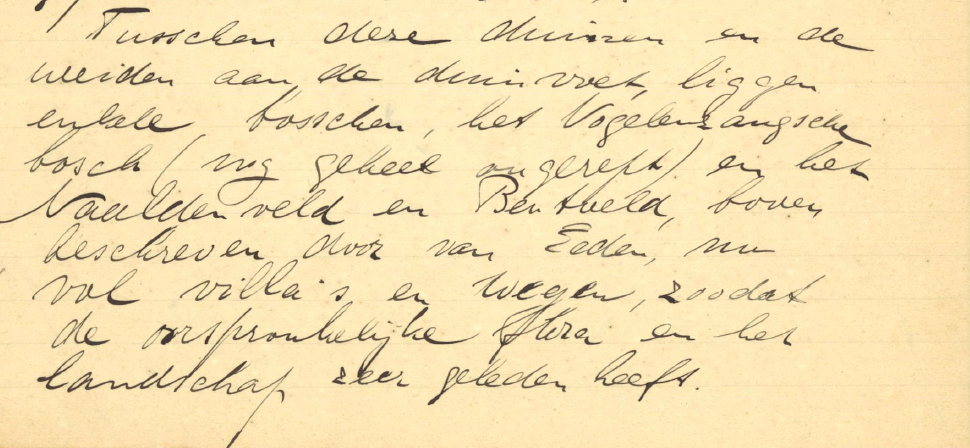 Tusschen deze duinen en de
weiden aan de duinvoet, liggen
enkele bosschen, het Vogelenzangsche
bosch (nog geheel ongerept) en het
Naaldenveld en Bentveld, boven
beschreven door van Eeden, nu
vol villa's en wegen, zoodat
de oorspronkelijke flora en het
landschap zeer geleden heeft.